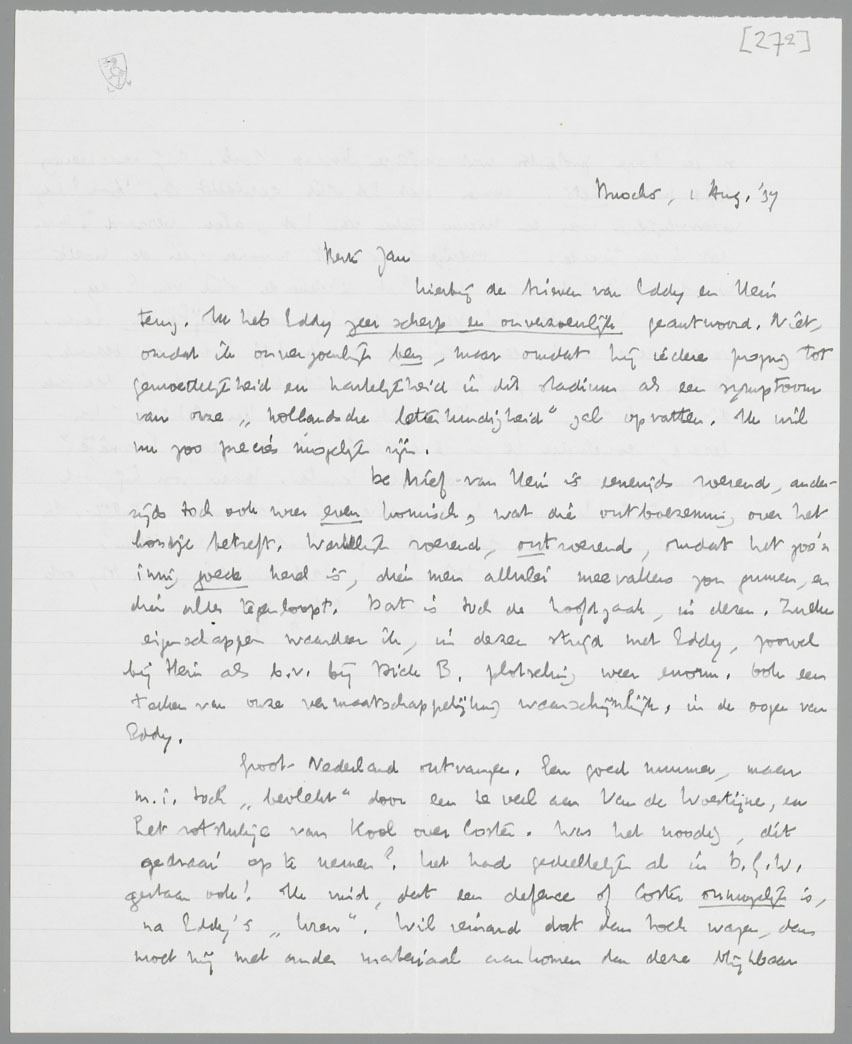 [272]
1 Aug. '37
Beste Jan
Hierbij de brieven van Eddy en Hein
terug. Ik heb Eddy zeer scherp en onverzoenlijk geantwoord. Niet,
omdat ik onverzoenlijk ben, maar omdat hij iedere poging tot
gemoedelijkheid en hartelijkheid in dit stadium als een symptoom
van onze „hollandsche letterkundigheid" zal opvatten. Ik wil
nu zoo precies mogelijk zijn.
De brief van Hein is eenerzijds roerend, ander-
zijds toch ook weer even komisch, wat die ontboezeming over het
boekje betreft. Werkelijk roerend, ontroerend, omdat het zoo'n
innig goede kerel is, dien men allerlei meevallers zou gunnen, en
dien alles tegenloopt. Dat is toch de hoofdzaak, in dezen. Zulke
eigenschappen waardeer ik, in dezen strijd met Eddy, zoowel
bij Hein als b.v. bij Dick B. plotseling weer enorm. Ook een
teeken van onze vermaatschappelijking waarschijnlijk, in de oogen van
Eddy.
Groot-Nederland ontvangen. Een goed nummer, maar
m.i. toch „bevlekt" door een te veel aan Van de Woestijne, en
het rotstukje van Kool over Coster. Was het noodig, dit
gedraai op te nemen? Het had gedeeltelijk al in D.G.W.
gestaan ook! Ik vind, dat een defence of Coster onmogelijk is,
na Eddy's „Uren". Wil iemand dat dan toch wagen, dan
moet hij met ander materiaal aankomen dan deze blijkbaar